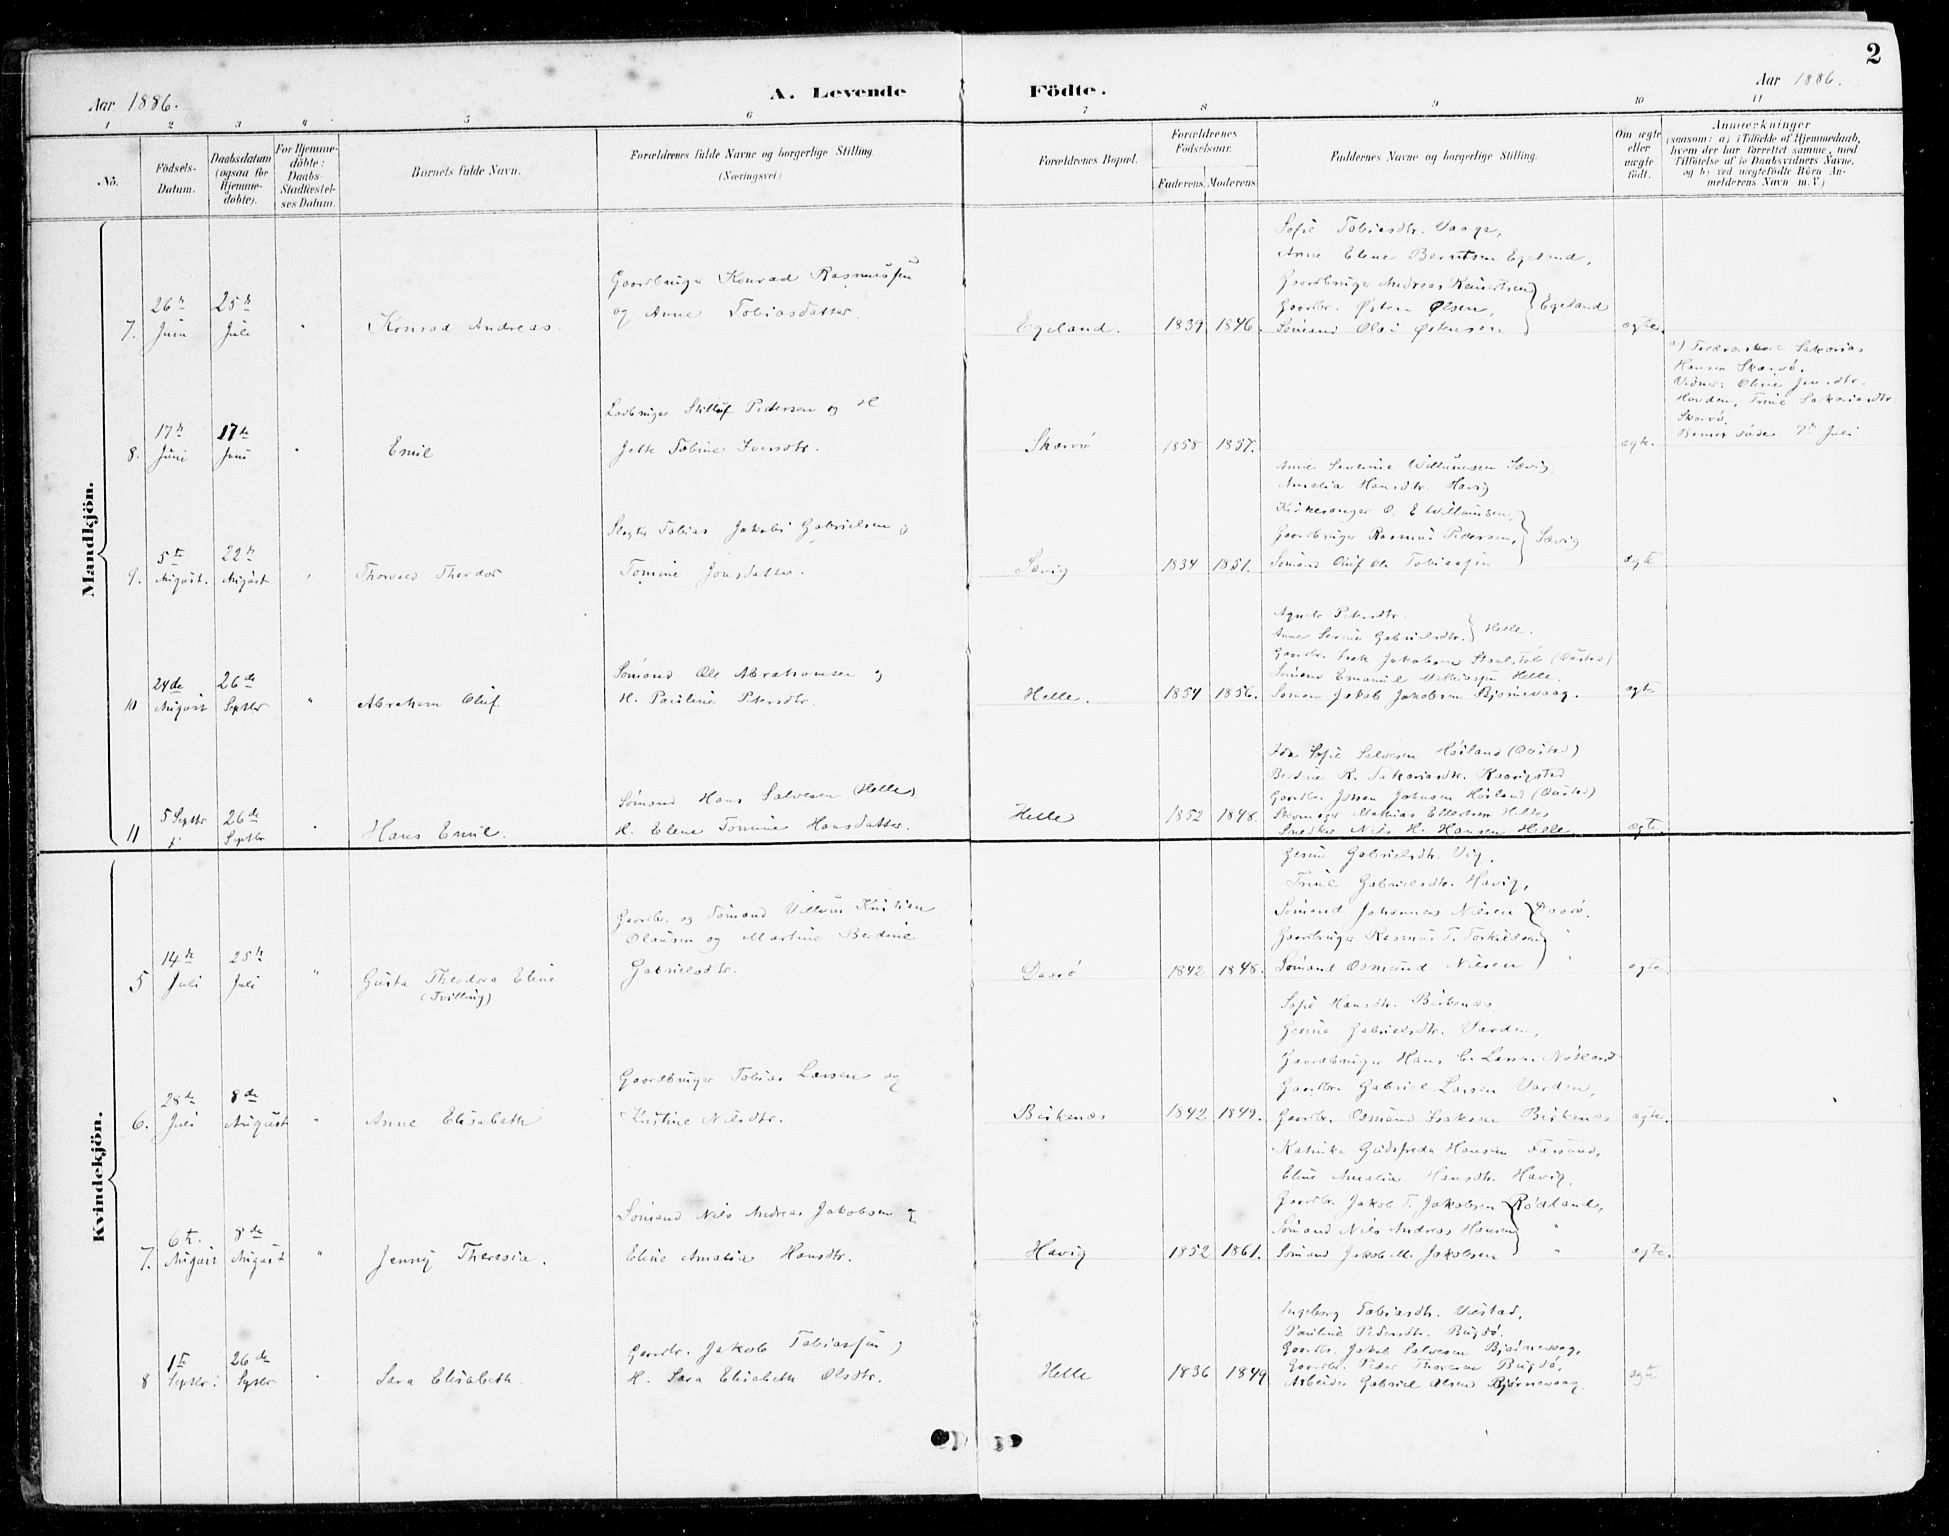 2
Aar 1886.
A. Levende
Födte.
Aar 1886.
1 2 3 4 5 6 7 8 9 10 11
No.
Födsels-
Datum.
Daabsdatum
(ogsaa for
Hjemme-
döbte).
For Hjemme-
döbte:
Daabs-
Stadfæstel-
ses Datum.
Barnets fulde Navn.
Forældrenes fulde Navne og borgerlige Stilling.
(Næringsvei)
Forældrenes Bopæl.
Forældrenes
Födselsaar.
Faderens. Moderens.
Faddernes Navne og borgerlige Stilling.
Om ægte
eller
uægte
födt.
Anmærkninger
(saasom: a) i Tilfælde af Hjemmedaab,
hvem der har forrettet samme, med
Tilföielse af to Daabsvidners Navne,
og b) ved uægtefödte Börn An-
melderens Navn m. V.)
Mandkjön.
Sofie Tobiasdtr. Vaage,
Anne Elene Berntsen Egeland,
Gaardbruger Konrad Rasmussen
Gaardbruger Andreas
26de 25de
og Anne Tobiasdatter.
Gaardbr. Østen Olsen, Egeland
7. Juni Juli " Konrad Andreas. Egeland. 1839 1846. Sømand Olai Østensen ægte.
a) Sakarias
Hansen Skarvø.
Vidner: Oline Jensdtr.
Hovden, Trine Sakariasdtr.
Skarvø.
Barnet døde 7de Juli
Pedersen og H.
17de 17de
8. Juni Juni " Emil Jette Tobine Iversdtr. Skarvø 1858 1857. ægte.
Anne Severine Willumsen Sævig,
Amalia Hansdtr. Havig
Kirkesanger O. E. Willumsen,
Tobias Jakobs Gabrielsen og
Gaardbruger Rasmus Pedersen, Sævig
5te 22de
9. August. August " Thorvald Theodor Tomine Jonsdatter. Sævig 1834 1851. Sømand Oluf Ole Tobiassen ægte
Agnete Petersdtr.
Anne Serine Gabrielsdtr. Helle.
Gaardbr. Isak Jakobsen (Oustad)
Sømand Ole Abrahamsen og
Sømand Emanuel Mathiassen Helle.
24de 26de
10 August Septbr " Abraham Oluf H. Pauline Petersdtr. Helle. 1854 1856. Sømand Jakob Jakobsen Bjørnevaag. ægte
Ida Sofie Salvesen Høiland (Oustad)
Berdine R. Sakariasdtr. Kaarigstad.
Sømand Hans Salvesen (Helle)
Gaardbr. Johan Johnsen Høiland (Oustad)
5 Septbr 26de
Skomager Mathias Ellertsen Helle
11 Septbr " Hans Emil. H. Elene Tomine Hansdatter. Helle 1852 1848. Snedker Nils H. Hansen Helle ægte
Kvindekjön.
Gesine Gabrielsdtr. Vig,
Trine Gabrielsdtr. Havig,
Gaardbr. og Sømand Villum Kristian
Sømand Johannes Nilsen Daarø.
Olausen og Martine Berdine
Gaardbruger Rasmus T. Torkildsen "
14de 25de
Gabrielsdtr.
5 Juli Juli " Gusta Theodora Eline Daarø 1842 1848. Sømand Osmund Nilsen " ægte.
(Tvilling)
Sofie Hansdtr. Birkenæs,
Gesine Gabrielsdtr. Varden,
Gaardbruger Hans C. Larsen
Gaardbruger Tobias Larsen og
Gaardbr. Gabriel Larsen Varden,
28de 8de
6. Juli August " Anne Elisabeth Kristine Nilsdtr. Birkenæs 1842 1849. Gaardbr. Osmund Isaksen Birkenæs ægte.
Katrinka Gudsfreda Hansen Farsund,
Eline Amalia Hansdtr. Havig,
Sømand Nils Andreas Jakobsen og
Gaardbr. Jakob T. Jakobsen Rødland,
Sømand Nils Andreas Hansen "
6te 8de
7. August August " Jenny Theresia. Eline Amalia Hansdtr. Havig 1852 1861. Sømand Jakob M. Jakobsen " ægte.
Ingeborg Tobiasdtr. Vaastad,
Pauline Pedersdtr. Bugdø.
Gaardbr. Jakob Tobiassen og
Gaardbr. Jakob Salvesen Bjørnevaag,
1ste 26de
Gaardbr. Peder Thoresen Bugdø,
8 Septbr. Septbr " Sara Elisabeth. H. Sara Elisabeth Olsdtr. Helle 1836 1849 Arbeider Gabriel Olsen Bjørnevaag. ægte